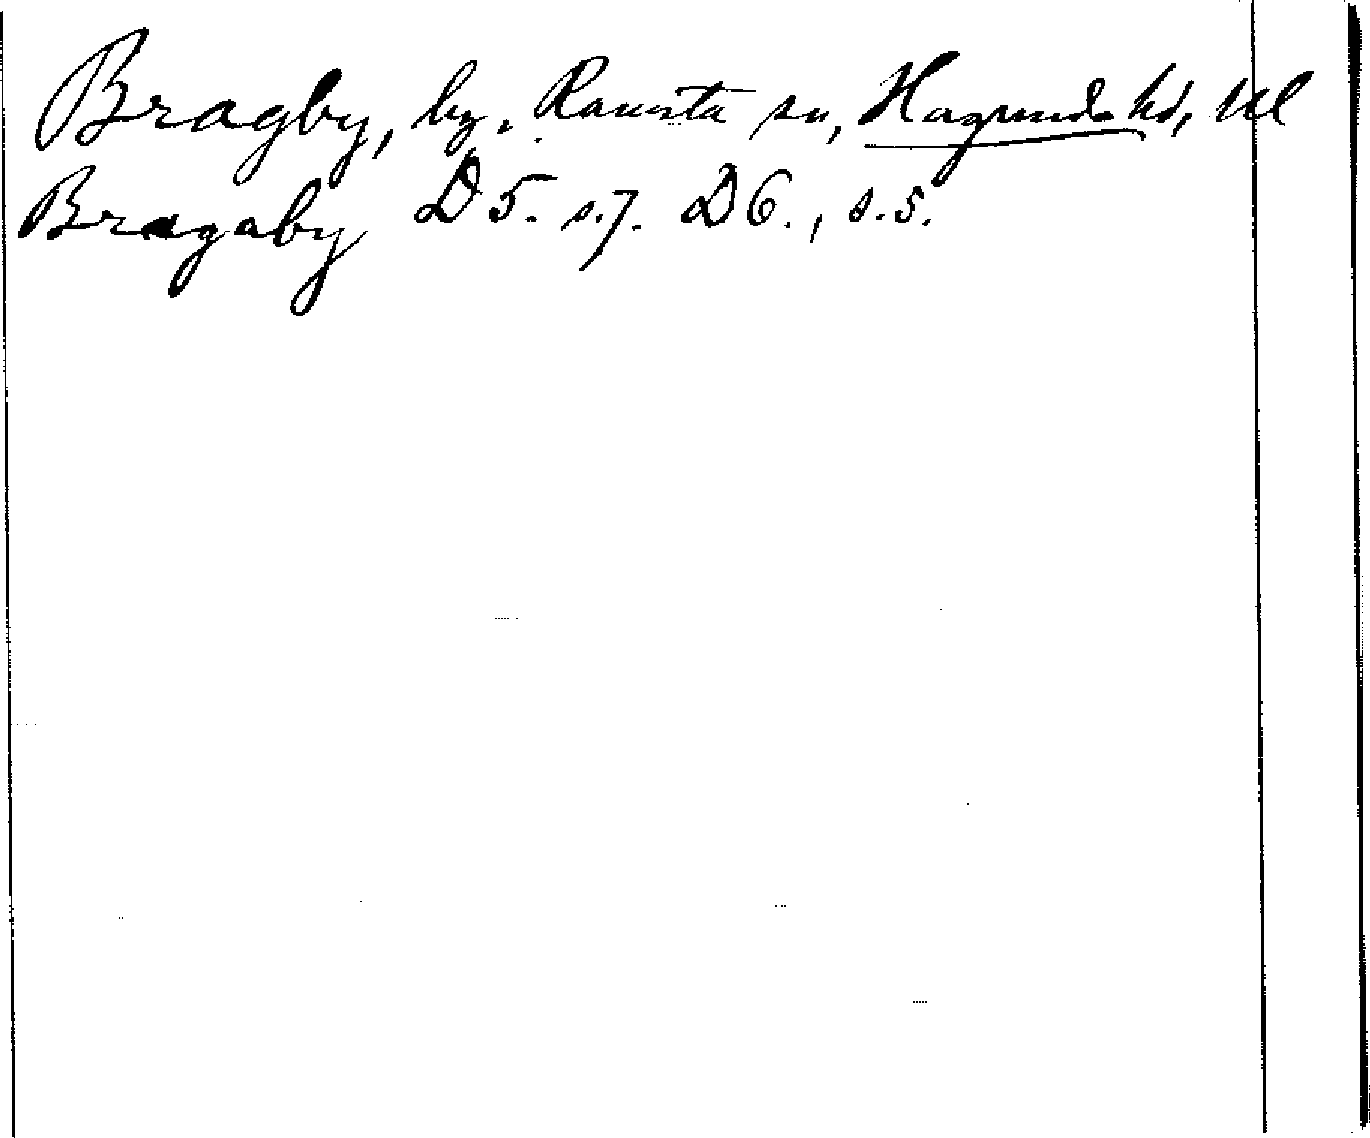 Bragby, by, Ramsta sn, Hagunda hd, Upl
Bragaby D5. s.7. D6., s.5.